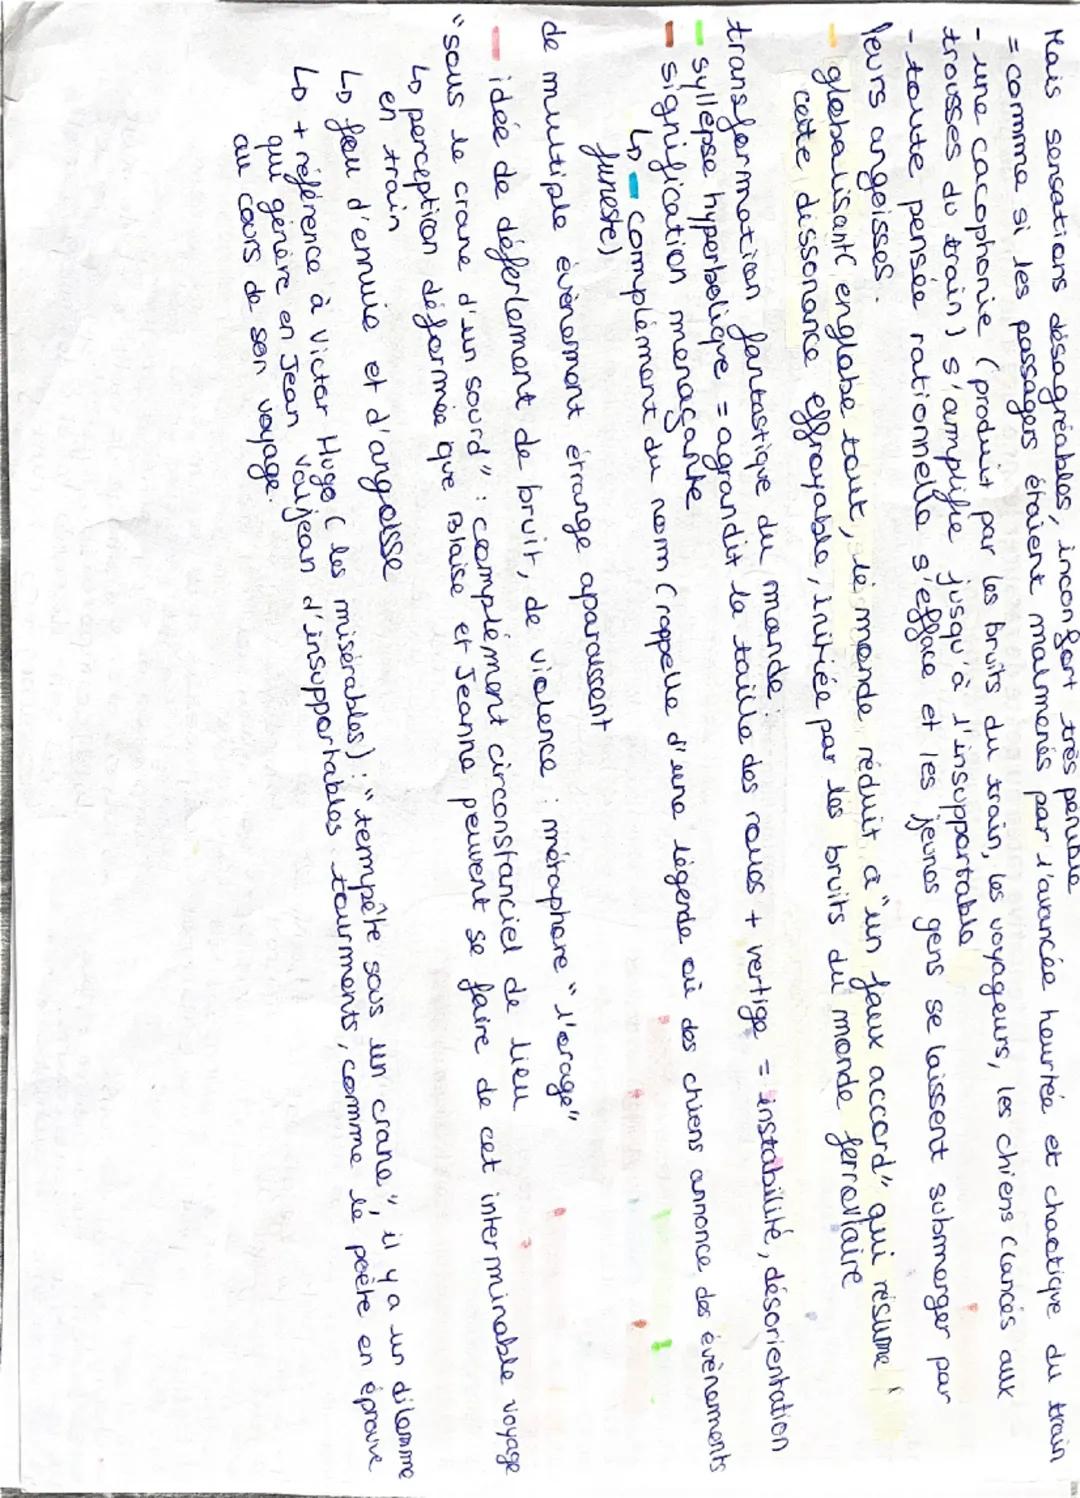 Mais sensations désagréables, inconfort très pénible
= comme si les passagers étaient malmenés par l'avancée heurtée et chaotique du train
- une cacophonie (produit par les bruits du train, les voyageurs, les chiens (lancés aux
trousses du train) s'amplifie jusqu'à l'insupportable
- toute pensée rationnelle s'efface et les jeunes gens se laissent submerger par
leurs angoisses.
- globalisant (englobe tout, le monde réduit à "un faux accord" qui résume
cette dissonance effroyable, initiée par les bruits du monde ferroviaire
transformation fantastique du monde :
- syllepse hyperbolique = agrandit la taille des roues + vertige = instabilité, désorientation
- signification menaçante
↳ - complément du nom (rappelle d'une légende où des chiens annonce des évènements
funeste)
de multiple évènement étrange aparaissent
- idée de déferlement de bruit, de violence : métaphore "l'orage"
"sous le crane d'un sourd" : complément circonstanciel de lieu
↳ perception déformée que Blaise et Jeanne peuvent se faire de cet interminable voyage
en train
↳ feu d'ennuie et d'angoisse
↳ + référence à Victor Hugo (les misérables) : "tempête sous un crane", il y a un dilemme
qui génère en Jean Valjean d'insupportables tourments, comme le poète en éprouve
au cours de son voyage.